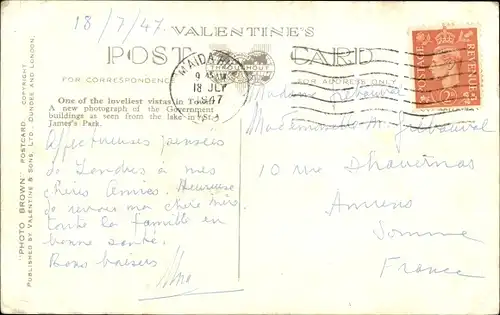 18/7/47.
VALENTINE'S
POST CARD
FOR CORRESPONDENCE
FOR ADDRESS ONLY
MAIDA HILL
18 JLY
1947
POSTAGE REVENUE
2D
One of the loveliest vistas in
A new photograph of the Government
buildings as seen from the lake in St.
James's Park.
Affectueuses pensées
de Londres à mes
chères Amies. Heureuse
de revoir ma chère
toute la famille en
bonne santé.
Bons baisers
Madame
Mademoiselle M.
10 rue
Amiens
Somme
France
"PHOTO BROWN" POSTCARD. COPYRIGHT
PUBLISHED BY VALENTINE & SONS, LTD., DUNDEE AND LONDON.